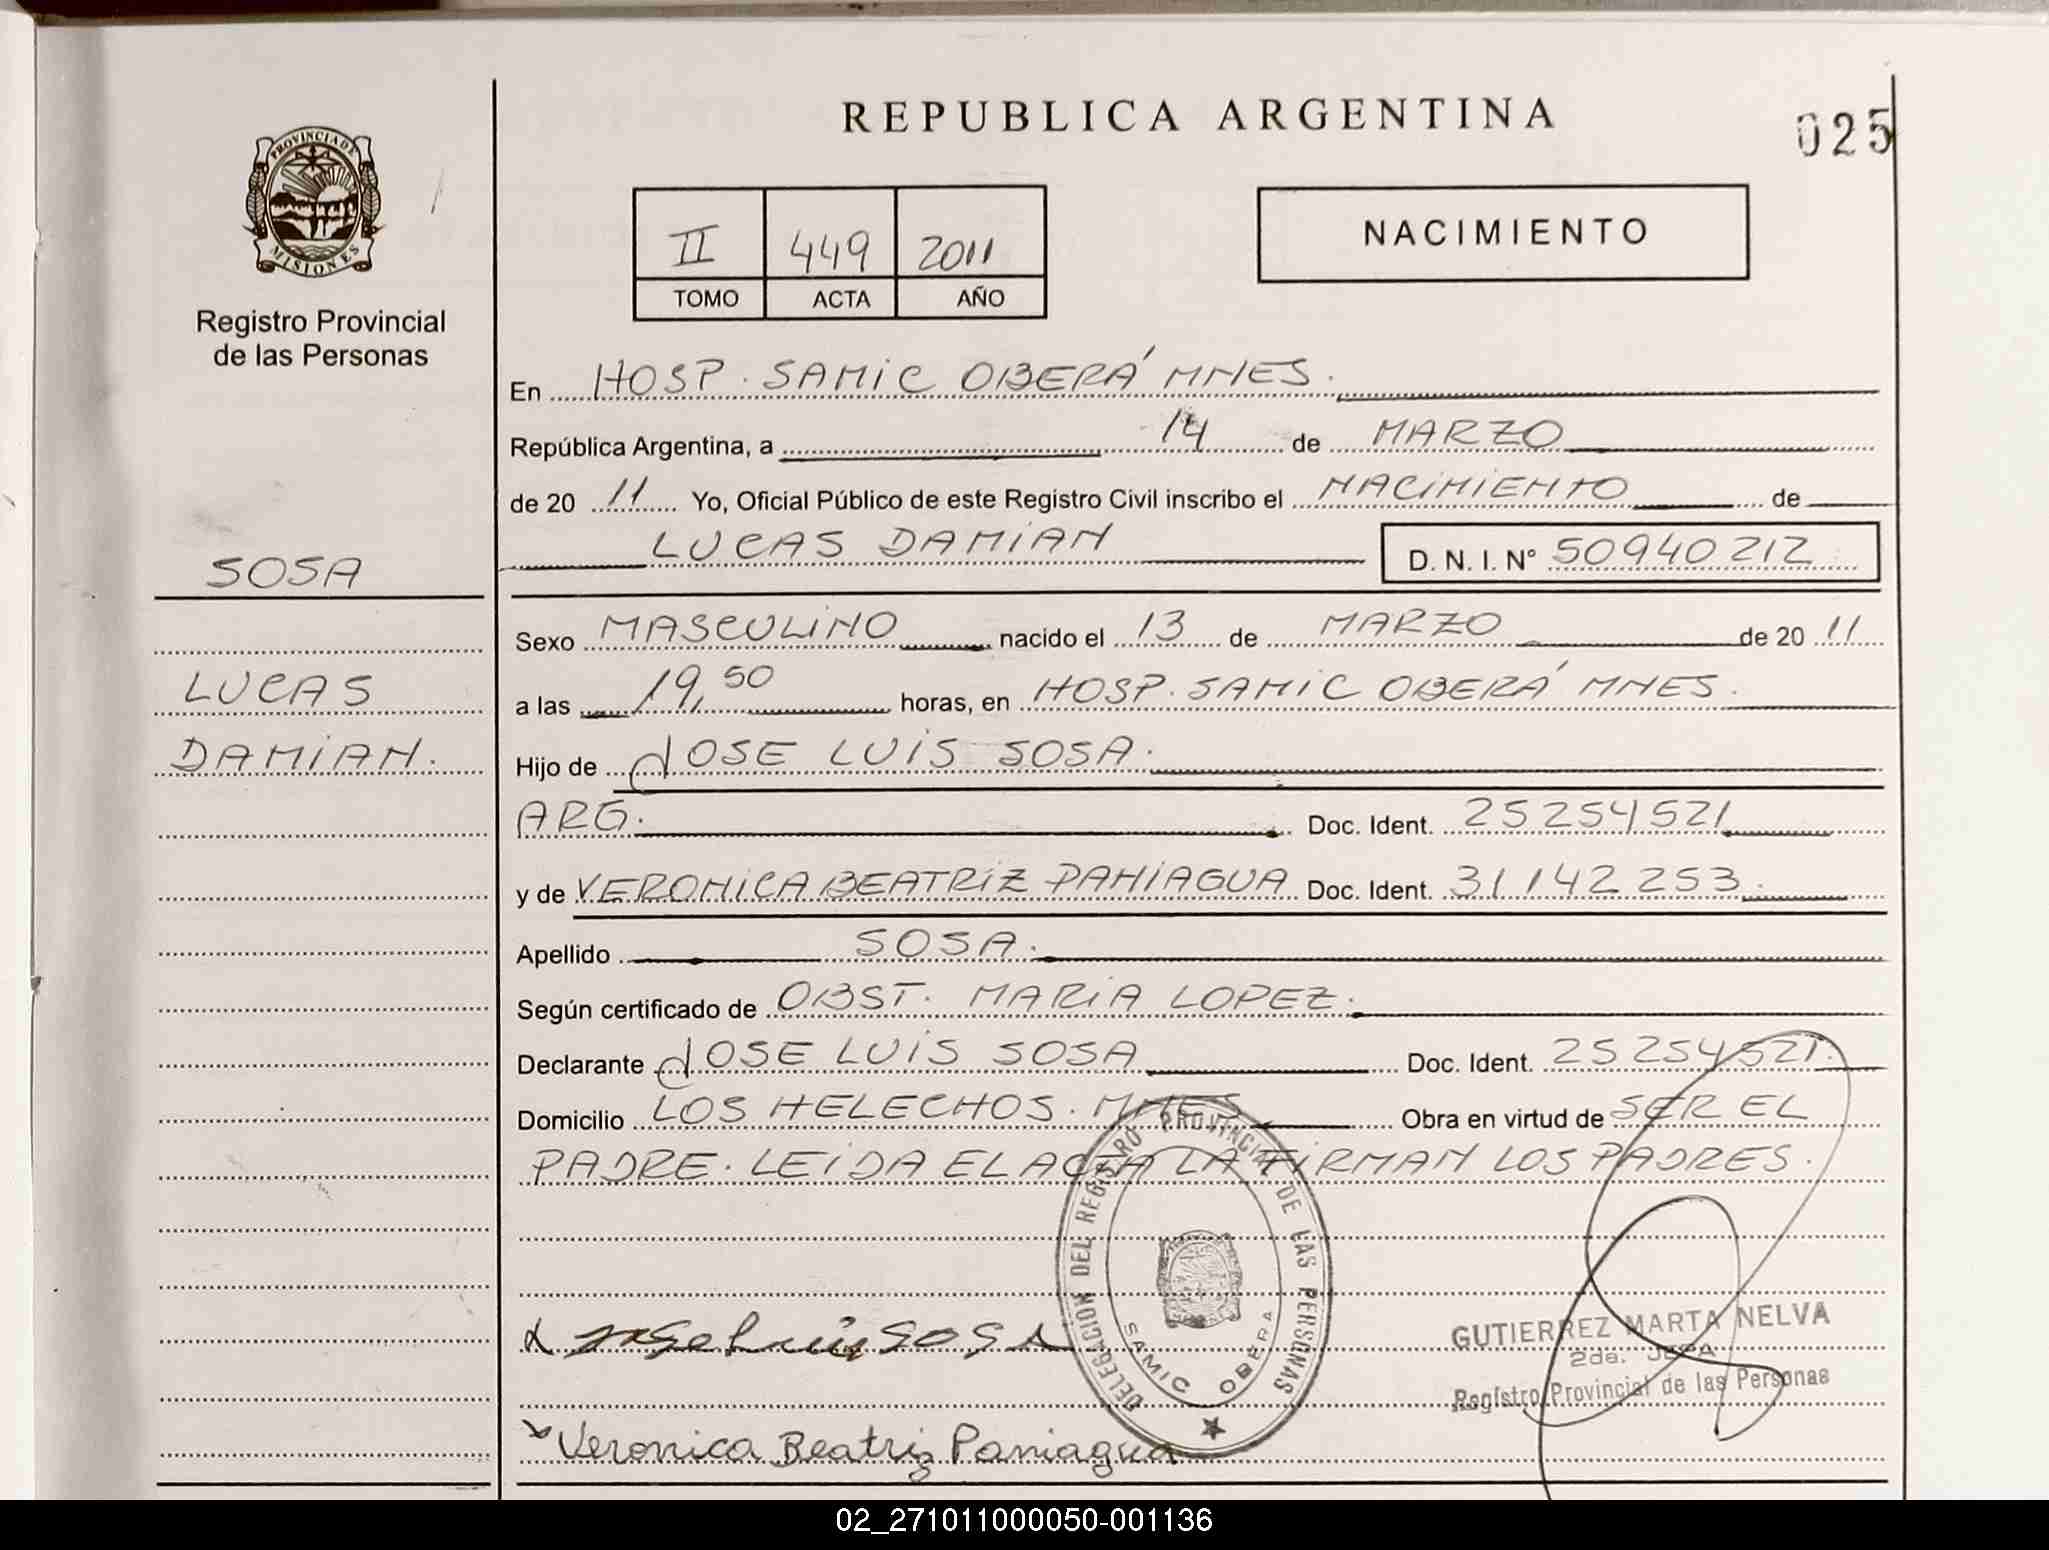 REPUBLICA ARGENTINA
025
PROVINCIA DE
MISIONES
Registro Provincial
de las Personas
II 449 2011
TOMO ACTA AÑO
NACIMIENTO
En HOSP. SAMIC OBERÁ MNES.
República Argentina, a 14 de MARZO
de 20 11 Yo, Oficial Público de este Registro Civil inscribo el NACIMIENTO de
LUCAS DAMIAN D. N. I. N° 50940212
SOSA
LUCAS
DAMIAN.
Sexo MASCULINO nacido el 13 de MARZO de 20 11
a las 19,50 horas, en HOSP. SAMIC OBERÁ MNES.
Hijo de JOSE LUIS SOSA.
ARG. Doc. Ident. 25254521
y de VERONICA BEATRIZ PANIAGUA Doc. Ident. 31.142.253.
Apellido SOSA.
Según certificado de OBST. MARIA LOPEZ.
Declarante JOSE LUIS SOSA Doc. Ident. 25254521.
Domicilio LOS HELECHOS. MNES Obra en virtud de SER EL
PADRE. LEIDA EL ACTA LA FIRMAN LOS PADRES.
DELEGACION DEL REGISTRO PROVINCIAL DE LAS PERSONAS
SAMIC OBERA
Jose Luis SOSA
GUTIERREZ MARTA NELVA
2da. JEFA
Registro Provincial de las Personas
Veronica Beatriz Paniagua
02_271011000050-001136